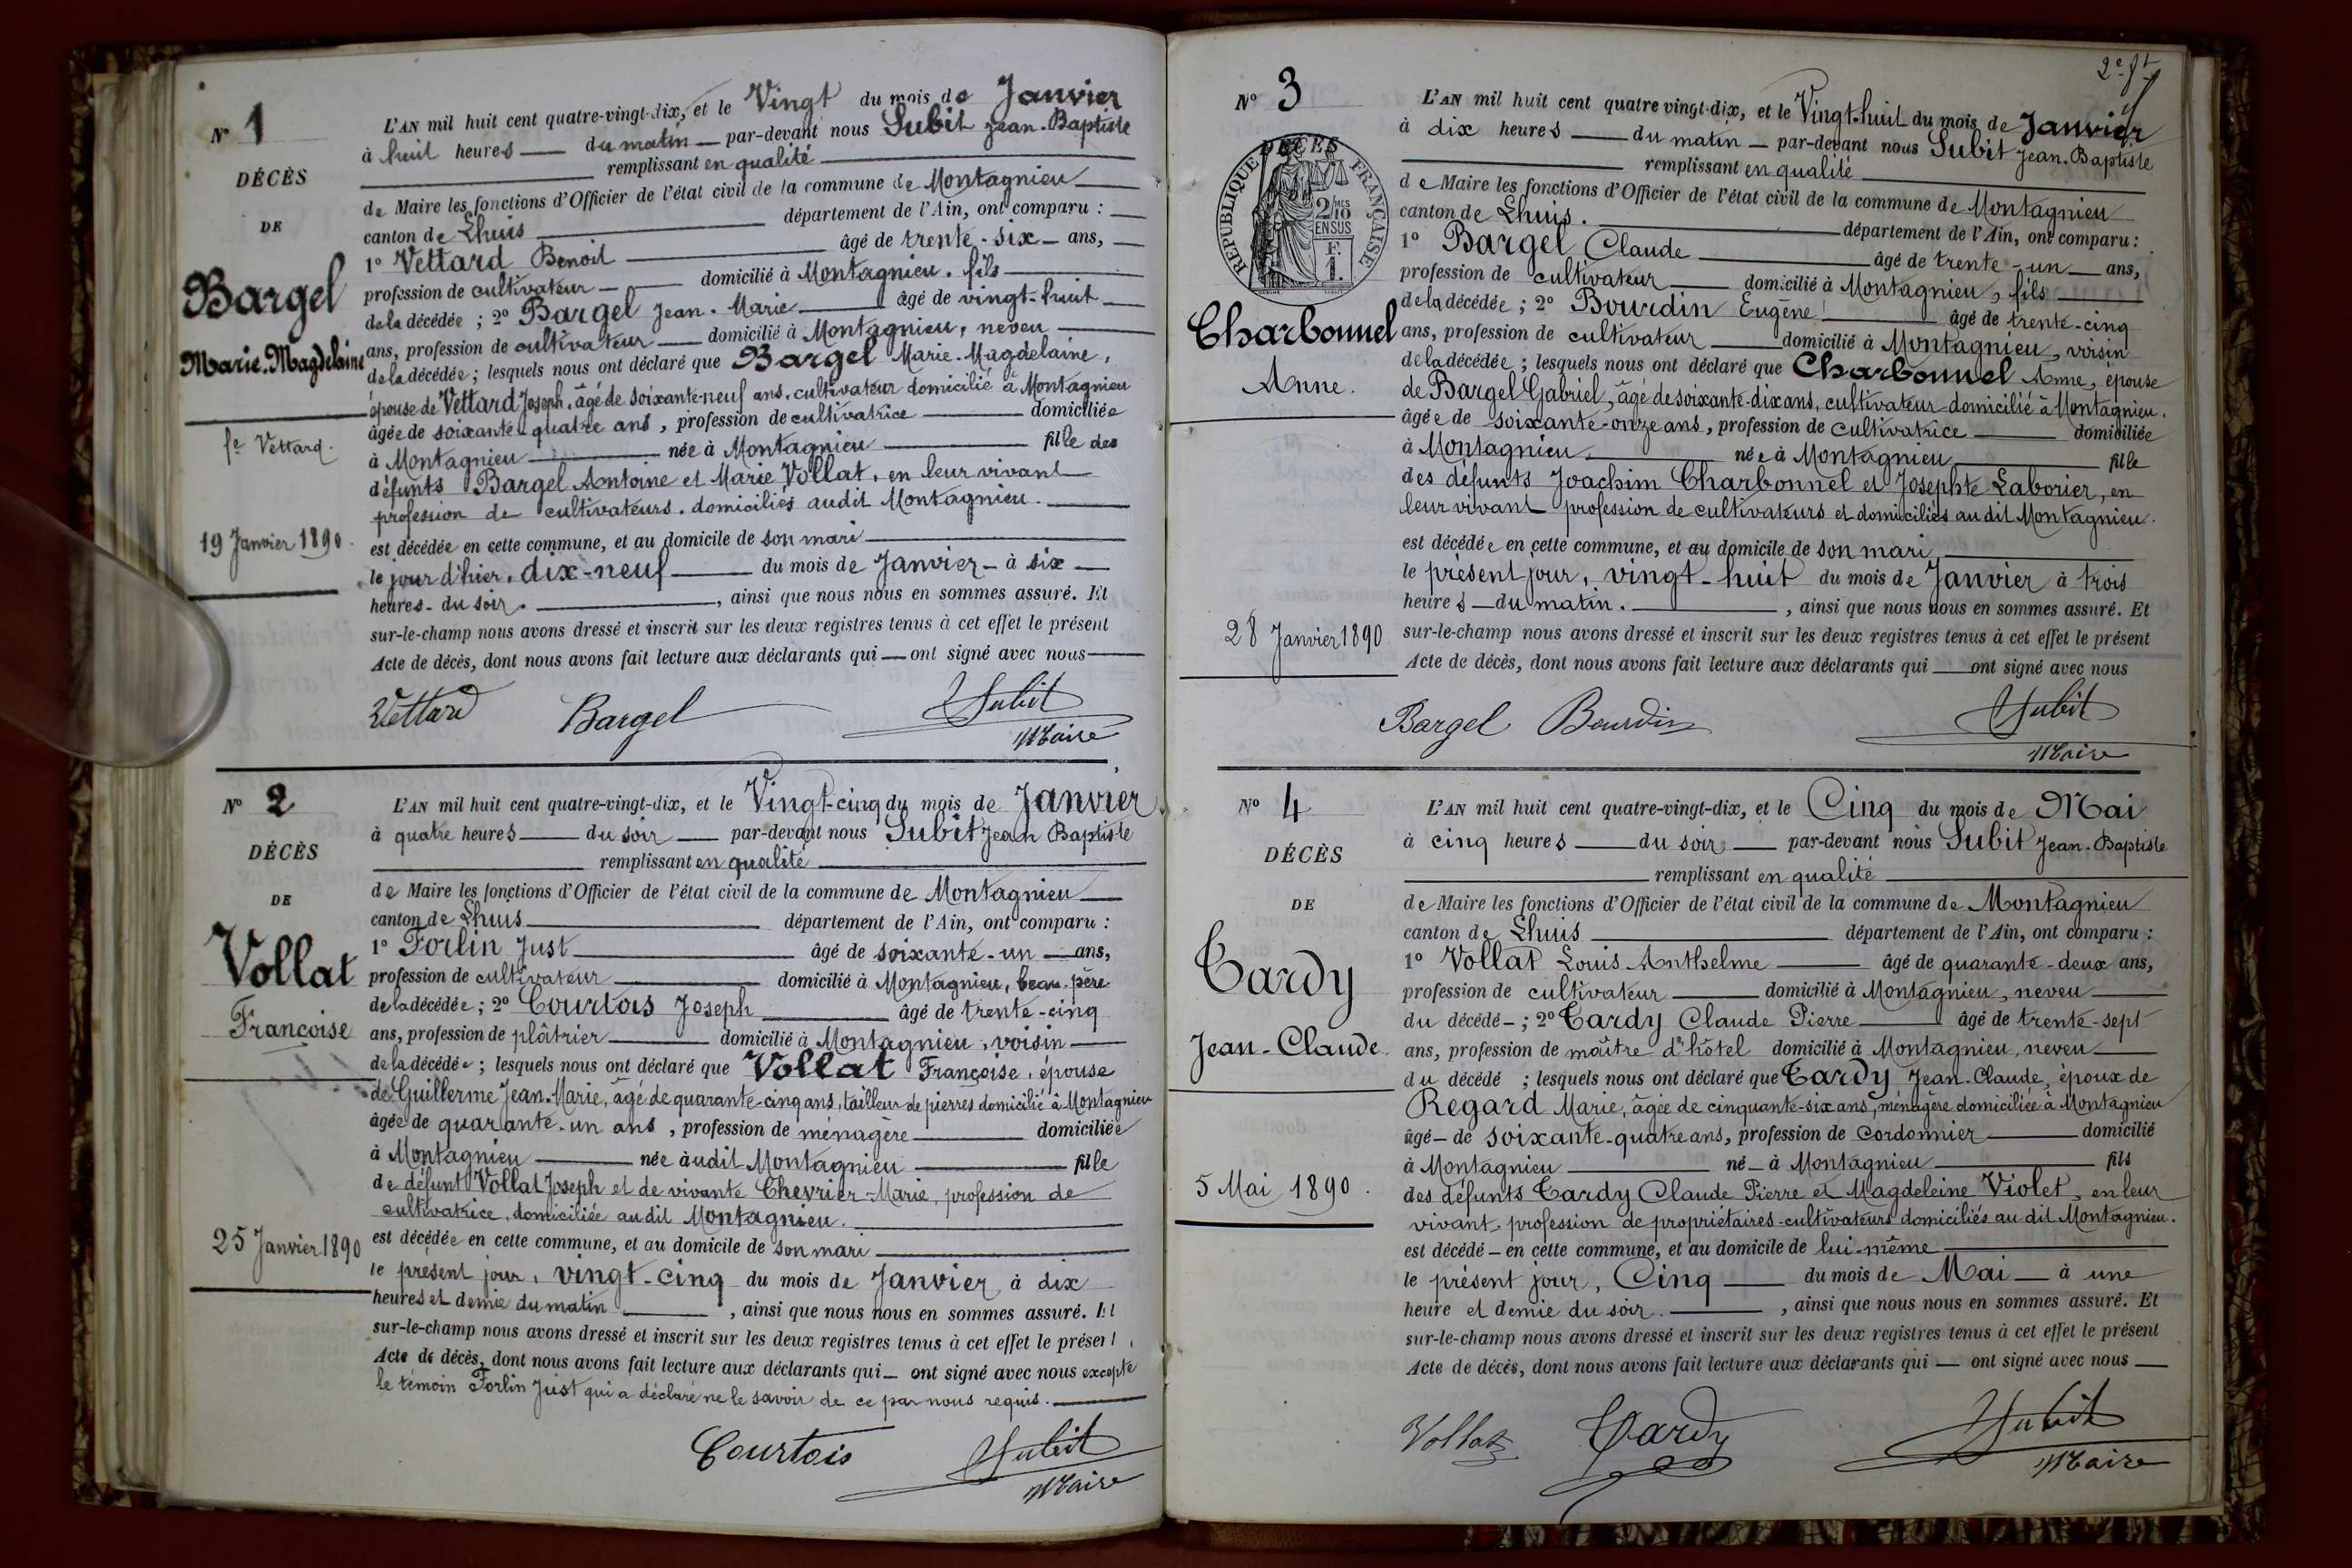 N° 1
DÉCÈS
DE
Bargel
Marie-Magdelaine
fe Vettard.
19 Janvier 1890.
L'AN mil huit cent quatre-vingt-dix, et le Vingt du mois de Janvier
à huit heures du matin par-devant nous Subit Jean-Baptiste
remplissant en qualité
de Maire les fonctions d'Officier de l'état civil de la commune de Montagnieu
canton de Lhuis département de l'Ain, ont comparu :
1° Vettard Benoit âgé de trente-six ans,
profession de cultivateur domicilié à Montagnieu. fils
de la décédée ; 2° Bargel Jean-Marie âgé de vingt-huit
ans, profession de cultivateur domicilié à Montagnieu, neveu
de la décédée ; lesquels nous ont déclaré que Bargel Marie-Magdelaine,
épouse de Vettard Joseph, âgé de soixante-neuf ans, cultivateur domicilié à Montagnieu
âgée de soixante-quatre ans, profession de cultivatrice domiciliée
à Montagnieu née à Montagnieu fille des
défunts Bargel Antoine et Marie Vollat, en leur vivant
profession de cultivateurs. domiciliés audit Montagnieu.
est décédée en cette commune, et au domicile de son mari
le jour d'hier, dix-neuf du mois de Janvier à six
heures du soir. , ainsi que nous nous en sommes assuré. Et
sur-le-champ nous avons dressé et inscrit sur les deux registres tenus à cet effet le présent
Acte de décès, dont nous avons fait lecture aux déclarants qui ont signé avec nous
Vettard Bargel Subit
Maire
N° 2
DÉCÈS
DE
Vollat
Françoise
25 Janvier 1890
L'AN mil huit cent quatre-vingt-dix, et le Vingt-cinq du mois de Janvier
à quatre heures du soir par-devant nous Subit Jean Baptiste
remplissant en qualité
de Maire les fonctions d'Officier de l'état civil de la commune de Montagnieu
canton de Lhuis département de l'Ain, ont comparu :
1° Forlin Just âgé de soixante-un ans,
profession de cultivateur domicilié à Montagnieu, beau-père
de la décédée ; 2° Courtois Joseph âgé de trente-cinq
ans, profession de plâtrier domicilié à Montagnieu, voisin
de la décédée ; lesquels nous ont déclaré que Vollat Françoise, épouse
de Guillerme Jean-Marie, âgé de quarante-cinq ans, tailleur de pierres domicilié à Montagnieu
âgée de quarante-un ans, profession de ménagère domiciliée
à Montagnieu née àudit Montagnieu fille
de défunt Vollat Joseph et de vivante Chevrier Marie, profession de
cultivatrice, domiciliée au dit Montagnieu.
est décédée en cette commune, et au domicile de son mari
le présent jour, vingt-cinq du mois de Janvier à dix
heures et demie du matin , ainsi que nous nous en sommes assuré. Et
sur-le-champ nous avons dressé et inscrit sur les deux registres tenus à cet effet le présent
Acte de décès, dont nous avons fait lecture aux déclarants qui ont signé avec nous excepté
le témoin Forlin Just qui a déclaré ne le savoir de ce par nous requis.
Courtois Subit
Maire
N° 3
DÉCÈS
RÉPUBLIQUE FRANÇAISE
2/10 MES
EN SUS
F.
1.
Charbonnel
Anne.
28 Janvier 1890
L'AN mil huit cent quatre vingt-dix, et le Vingt-huit du mois de Janvier
à dix heures du matin par-devant nous Subit Jean-Baptiste
remplissant en qualité
de Maire les fonctions d'Officier de l'état civil de la commune de Montagnieu
canton de Lhuis. département de l'Ain, ont comparu :
1° Bargel Claude âgé de trente-un ans,
profession de cultivateur domicilié à Montagnieu, fils
de la décédée ; 2° Bourdin Eugène âgé de trente-cinq
ans, profession de cultivateur domicilié à Montagnieu, voisin
de la décédée ; lesquels nous ont déclaré que Charbonnel Anne, épouse
de Bargel Gabriel, âgé de soixante-dix ans, cultivateur domicilié à Montagnieu.
âgée de soixante-onze ans, profession de cultivatrice domiciliée
à Montagnieu. née à Montagnieu fille
des défunts Joachim Charbonnel et Josephte Laborier, en
leur vivant profession de cultivateurs et domiciliés au dit Montagnieu.
est décédée en cette commune, et au domicile de son mari
le présent jour, vingt-huit du mois de Janvier à trois
heures du matin. , ainsi que nous nous en sommes assuré. Et
sur-le-champ nous avons dressé et inscrit sur les deux registres tenus à cet effet le présent
Acte de décès, dont nous avons fait lecture aux déclarants qui ont signé avec nous
Bargel Bourdin Subit
Maire
N° 4
DÉCÈS
DE
Tardy
Jean-Claude
5 Mai 1890.
L'AN mil huit cent quatre-vingt-dix, et le Cinq du mois de Mai
à cinq heures du soir par-devant nous Subit Jean-Baptiste
remplissant en qualité
de Maire les fonctions d'Officier de l'état civil de la commune de Montagnieu
canton de Lhuis département de l'Ain, ont comparu :
1° Vollat Louis Anthelme âgé de quarante-deux ans,
profession de cultivateur domicilié à Montagnieu, neveu
du décédé ; 2° Tardy Claude Pierre âgé de trente-sept
ans, profession de maître d'hôtel domicilié à Montagnieu, neveu
du décédé ; lesquels nous ont déclaré que Tardy Jean-Claude, époux de
Regard Marie, âgée de cinquante-six ans, ménagère domiciliée à Montagnieu
âgé de soixante-quatre ans, profession de cordonnier domicilié
à Montagnieu né à Montagnieu fils
des défunts Tardy Claude Pierre et Magdeleine Violet, en leur
vivant, profession de propriétaires-cultivateurs domiciliés au dit Montagnieu.
est décédé en cette commune, et au domicile de lui-même
le présent jour, Cinq du mois de Mai à une
heure et demie du soir. , ainsi que nous nous en sommes assuré. Et
sur-le-champ nous avons dressé et inscrit sur les deux registres tenus à cet effet le présent
Acte de décès, dont nous avons fait lecture aux déclarants qui ont signé avec nous
Vollat Tardy Subit
Maire